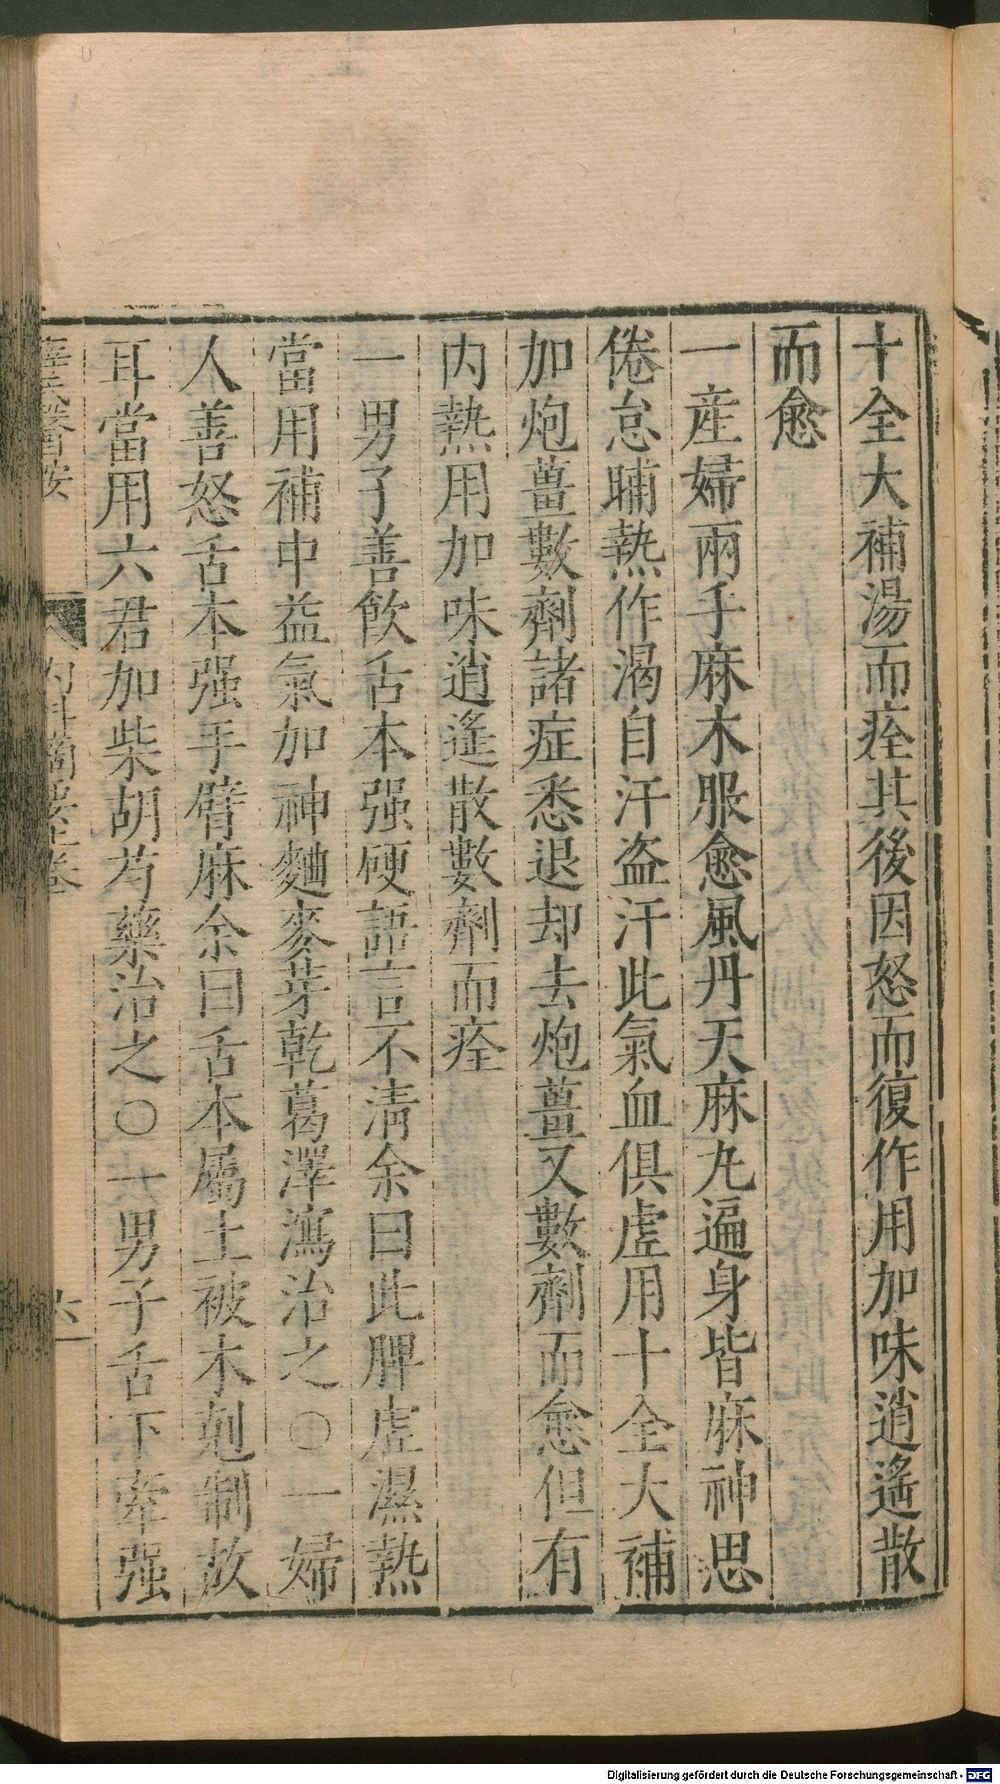 十全大補湯而痊其後因怒而復作用加味逍遙散
而愈
一產婦兩手麻木服愈風丹天麻丸遍身皆麻神思
倦怠晡熱作渴自汗盗汗此氣血俱虛用十全大補
加炮薑數劑諸症悉退却去炮薑又數劑而愈但有
内熱用加味逍遙散數劑而痊
一男子善飲舌本强硬語言不清余曰此脾虛濕熱
當用補中益氣加神麯麥芽乾葛澤瀉治之〇一婦
人善怒舌本强手臂麻余曰舌本屬土被木剋制故
耳當用六君加柴胡芍藥治之〇一男子舌下牽强
薛氏醫按 内科摘要上卷 六
Digitalisierung gefördert durch die Deutsche Forschungsgemeinschaft - DFG